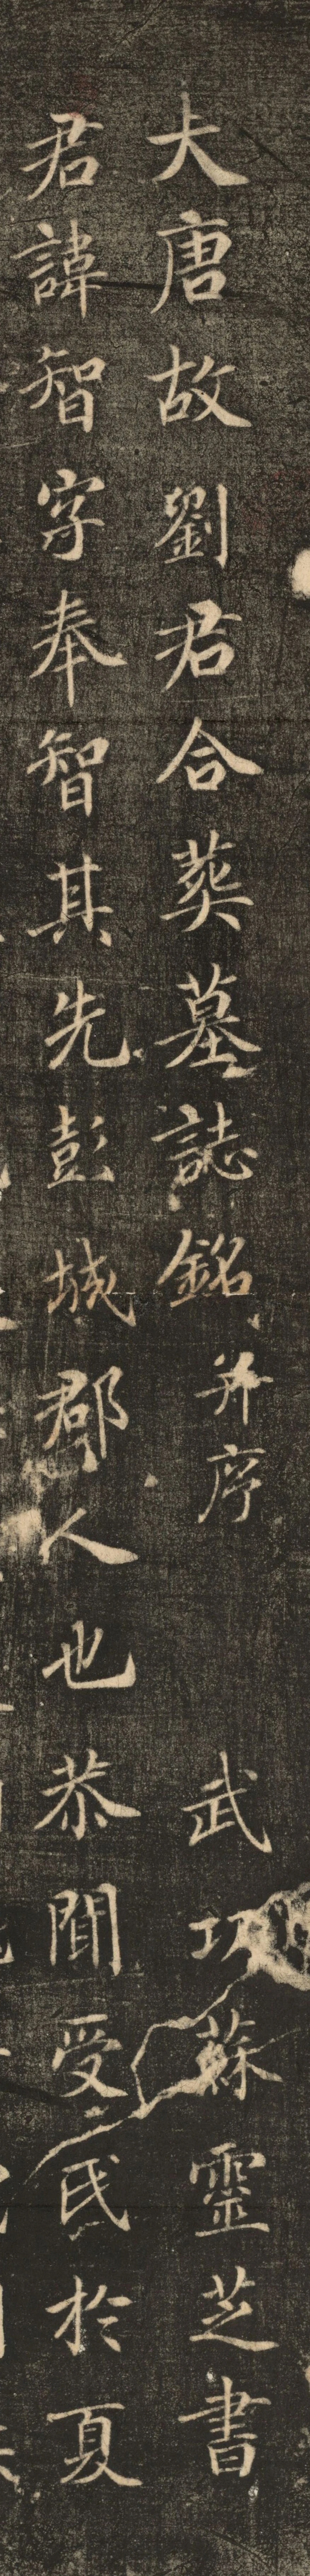 大唐故劉君合葬墓誌銘并序 武功蘇靈芝書
君諱智字奉智其先彭城郡人也恭聞受氏於夏